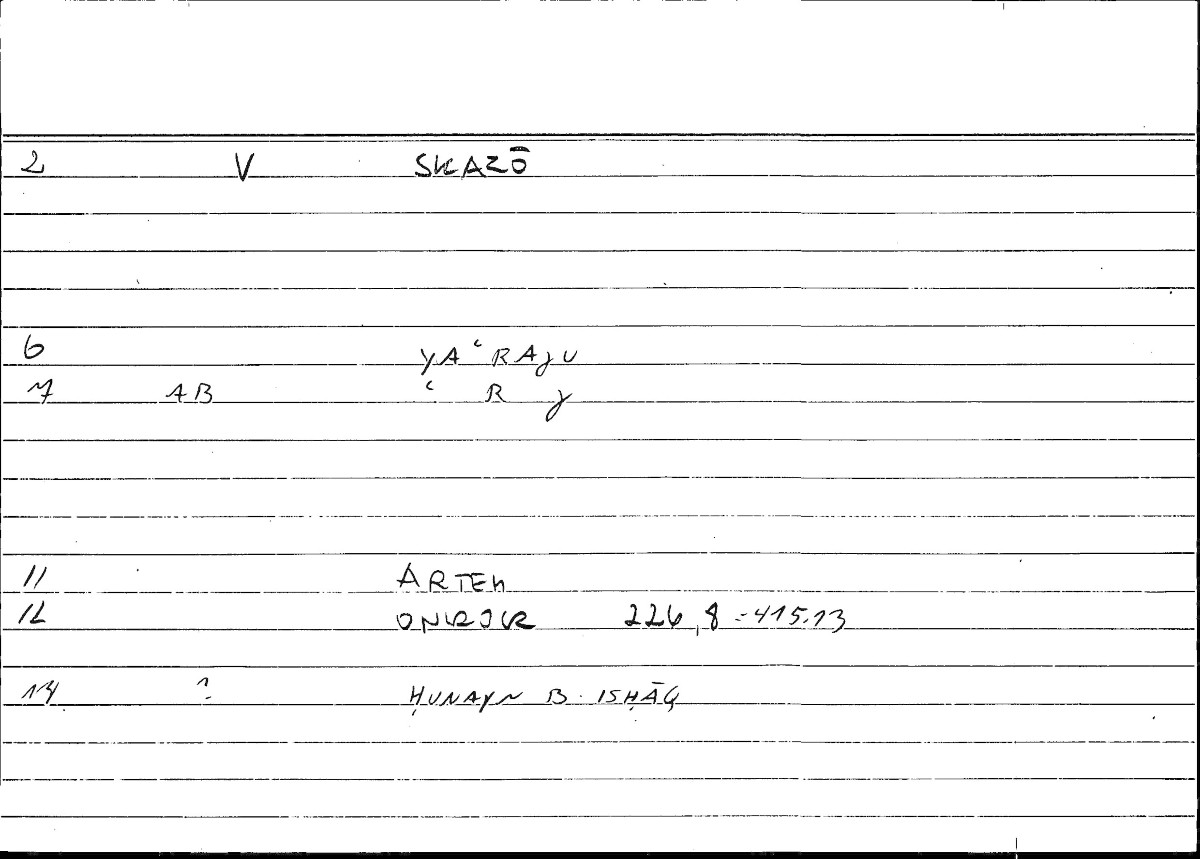 2 V SKAZŌ
6 YAʿRAJU
7 AB ʿ R J
11 ARTEM
12 ONIROCR 226,8 = 415.13
14 ? ḤUNAYN B. ISḤĀQ